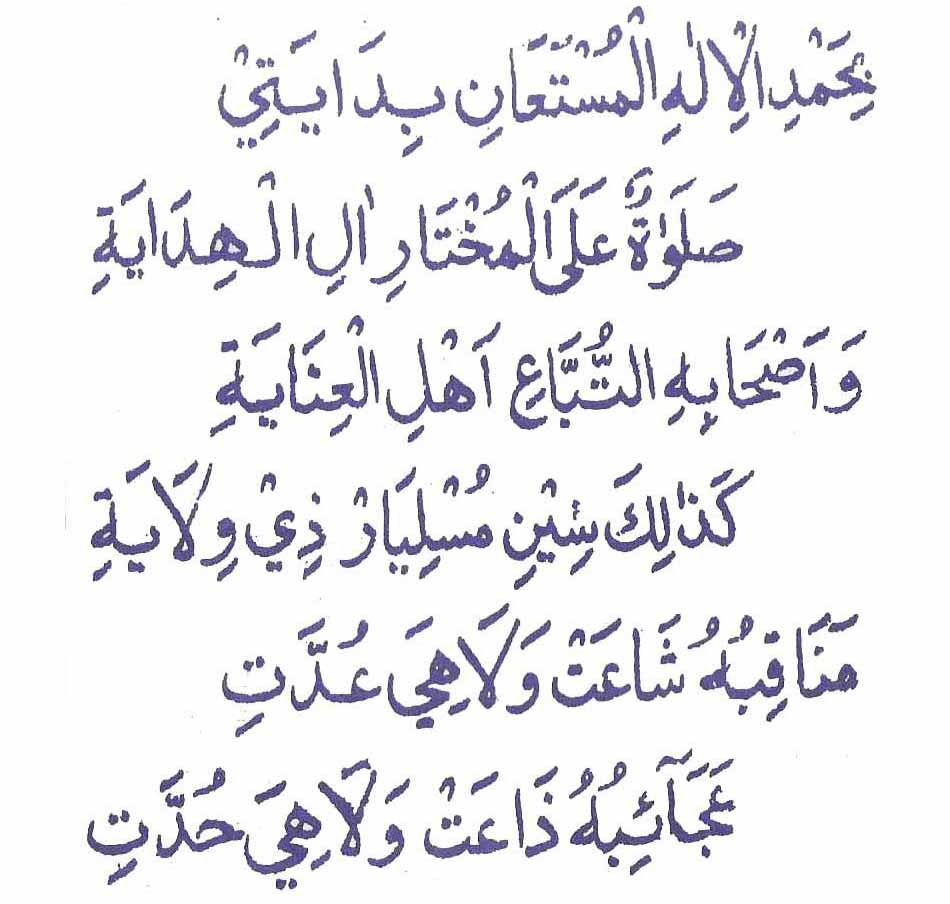 بِحَمْدِ الْاِلٰهِ الْمُسْتَعَانِ بِدَايَتِيْ
صَلَوٰةٌ عَلَى الْمُخْتَارِ اٰلِ الْهِدَايَةِ
وَاَصْحَابِهِ التُّبَّاعِ اَهْلِ الْعِنَايَةِ
كَذٰلِكَ سِيْنِ مُسْلِيَارْ ذِيْ وِلَايَةِ
مَنَاقِبُهُ شَاعَتْ وَلَا هِيَ عُدَّتِ
عَجَآئِبُهُ ذَاعَتْ وَلَا هِيَ حُدَّتِ